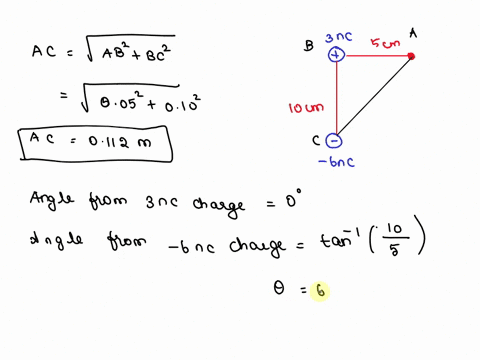 AC = √AB² + BC²
= √0.05² + 0.10²
AC = 0.112 m
B 3nc 5cm A
10cm
C
-6nc
Angle from 3nc charge = 0°
Angle from -6nc charge = tan⁻¹ (10/5)
θ = 6